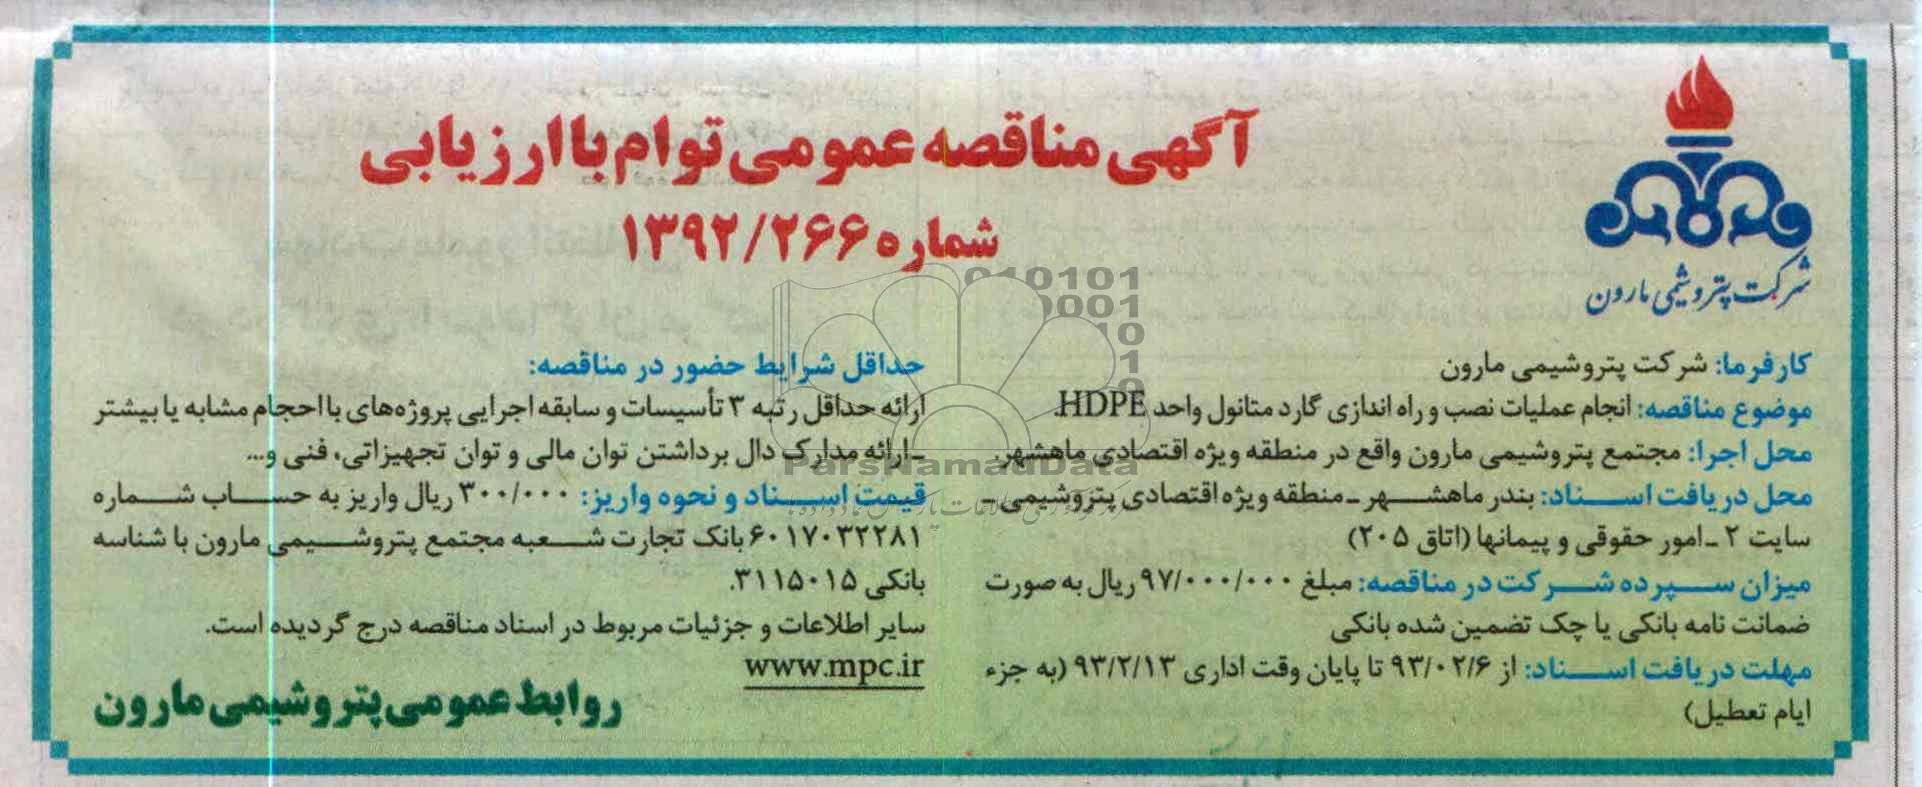 آگهی مناقصه عمومی توام با ارزیابی
شماره ۱۳۹۲/۲۶۶
شرکت پتروشیمی مارون
کارفرما: شرکت پتروشیمی مارون
موضوع مناقصه: انجام عملیات نصب و راه اندازی گارد متانول واحد HDPE.
محل اجرا: مجتمع پتروشیمی مارون واقع در منطقه ویژه اقتصادی ماهشهر.
محل دریافت اسناد: بندر ماهشهر ـ منطقه ویژه اقتصادی پتروشیمی ـ
سایت ۲ ـ امور حقوقی و پیمانها (اتاق ۲۰۵)
میزان سپرده شرکت در مناقصه: مبلغ ۹۷/۰۰۰/۰۰۰ ریال به صورت
ضمانت نامه بانکی یا چک تضمین شده بانکی
مهلت دریافت اسناد: از ۹۳/۰۲/۶ تا پایان وقت اداری ۹۳/۲/۱۳ (به جزء
ایام تعطیل)
حداقل شرایط حضور در مناقصه:
ارائه حداقل رتبه ۳ تأسیسات و سابقه اجرایی پروژه‌های با احجام مشابه یا بیشتر
ـ ارائه مدارک دال برداشتن توان مالی و توان تجهیزاتی، فنی و...
قیمت اسناد و نحوه واریز: ۳۰۰/۰۰۰ ریال واریز به حساب شماره
۶۰۱۷۰۳۲۲۸۱ بانک تجارت شعبه مجتمع پتروشیمی مارون با شناسه
بانکی ۳۱۱۵۰۱۵.
سایر اطلاعات و جزئیات مربوط در اسناد مناقصه درج گردیده است.
www.mpc.ir
روابط عمومی پتروشیمی مارون
010101
0001
10
1
0
ParsNamadData